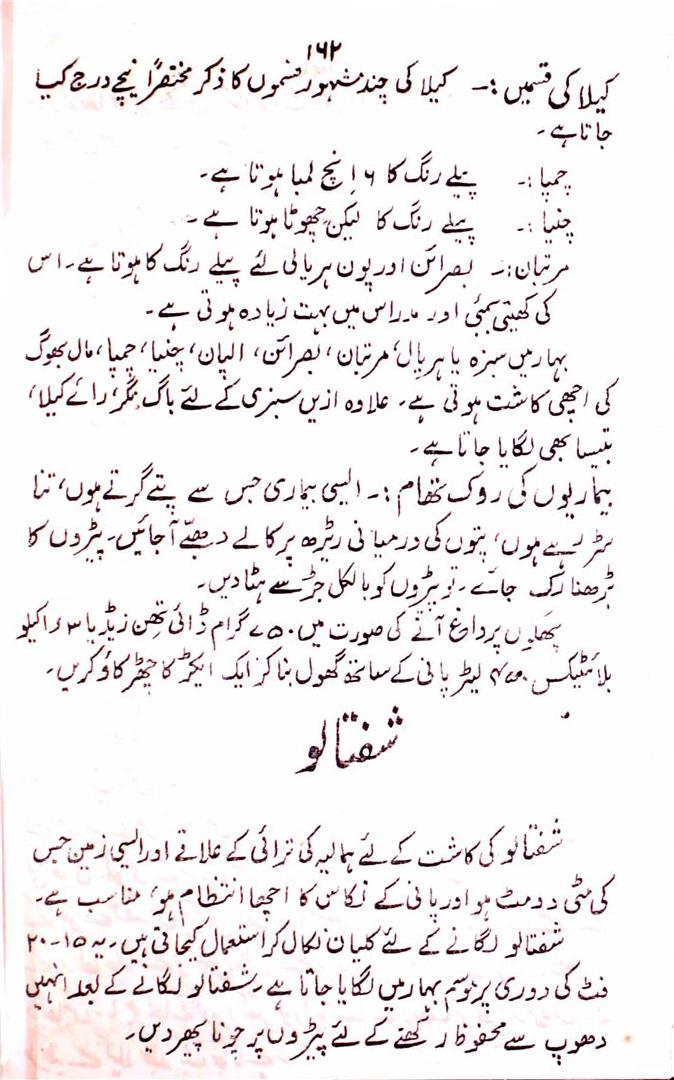 ۱۶۲
کیلا کی قسمیں :۔ کیلا کی چند مشہور قسموں کا ذکر مختصراً نیچے درج کیا
جاتا ہے۔
چمپا :۔ پیلے رنگ کا ۶ انچ لمبا ہوتا ہے۔
چنیا :۔ پیلے رنگ کا لیکن چھوٹا ہوتا ہے۔
مرتبان :۔ بصرائن اور پون ہریالی لئے پیلے رنگ کا ہوتا ہے۔ اس
کی کھیتی بمبئی اور مدراس میں بہت زیادہ ہوتی ہے۔
بہار میں سبزہ یا ہرپال، مرتبان، بصرائن، الپان، چنیا، چمپا، مال بھوگ
کی اچھی کاشت ہوتی ہے۔ علاوہ ازیں سبزی کے لئے باگ نگر، رائے کیلا،
بتیسا بھی لگایا جاتا ہے۔
بیماریوں کی روک تھام :۔ ایسی بیماری جس سے پتے گرتے ہوں، تنا
سڑ رہے ہوں، پتوں کی درمیانی ریڑھ پر کالے دھبے آ جائیں۔ پیڑوں کا
بڑھنا رک جائے۔ تو پیڑوں کو بالکل جڑ سے ہٹا دیں۔
پھلوں پر داغ آنے کی صورت میں ۷۵۰ گرام ڈائی تھن زیڈ یا کیلو
بلائٹیکس لیٹر پانی کے ساتھ گھول بنا کر ایک ایکڑ کا چھڑکاؤ کریں۔
شفتالو
شفتالو کی کاشت کے لئے ہمالیہ کی ترائی کے علاقے اور ایسی زمین جس
کی مٹی دومٹ ہو اور پانی کے نکاس کا اچھا انتظام ہو، مناسب ہے۔
شفتالو لگانے کے لئے کلیان نکال کر استعمال کیجاتی ہیں۔ یہ ۱۵۔۲۰
فٹ کی دوری پر موسم بہار میں لگایا جاتا ہے۔ شفتالو لگانے کے بعد انہیں
دھوپ سے محفوظ رکھنے کے لئے پیڑوں پر چونا پھیر دیں۔